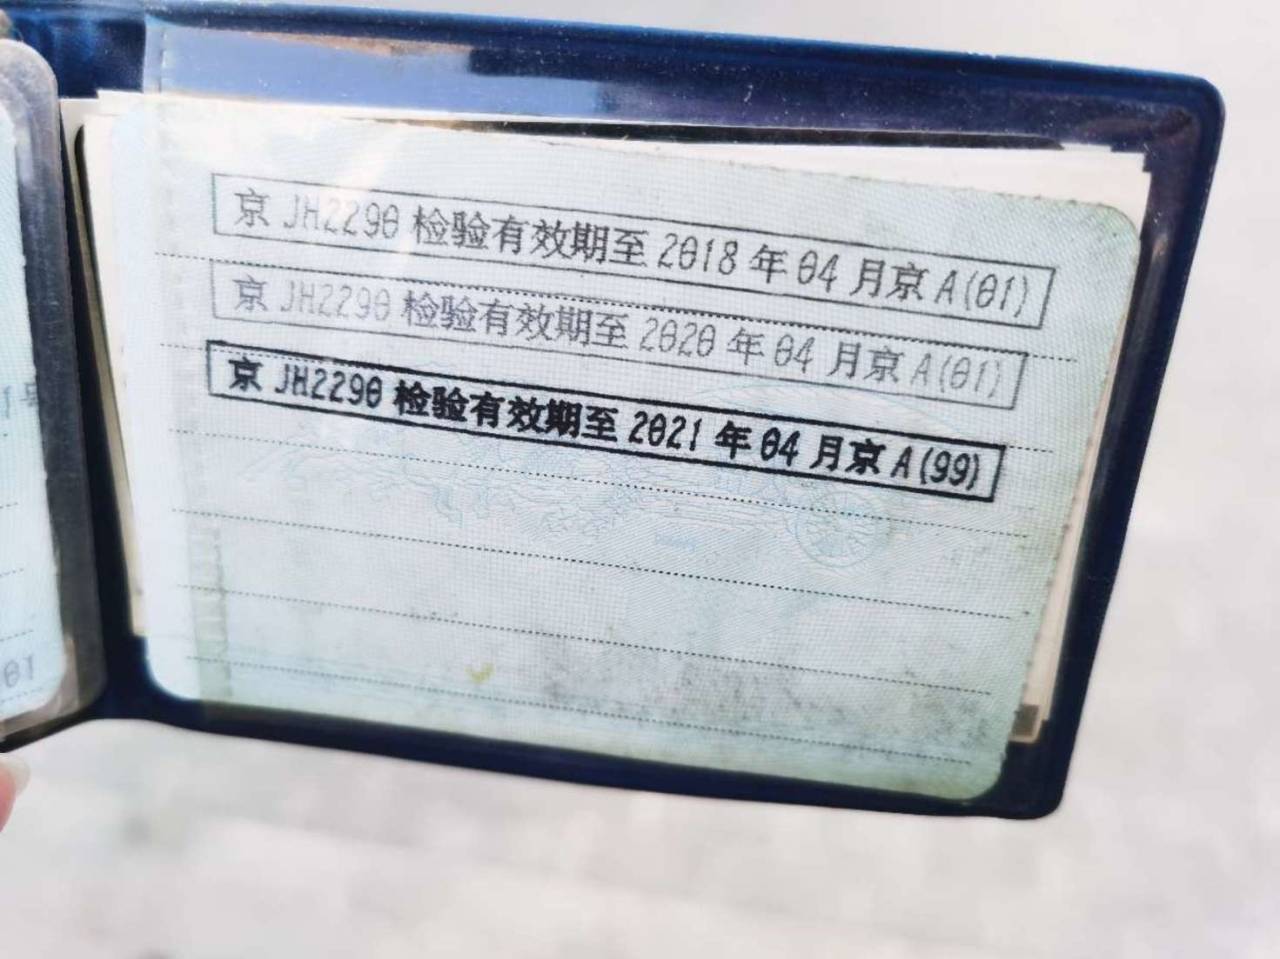 京 JH2290 检验有效期至 2018 年 04 月京 A(01)
京 JH2290 检验有效期至 2020 年 04 月京 A(01)
京 JH2290 检验有效期至 2021 年 04 月京 A(99)
01